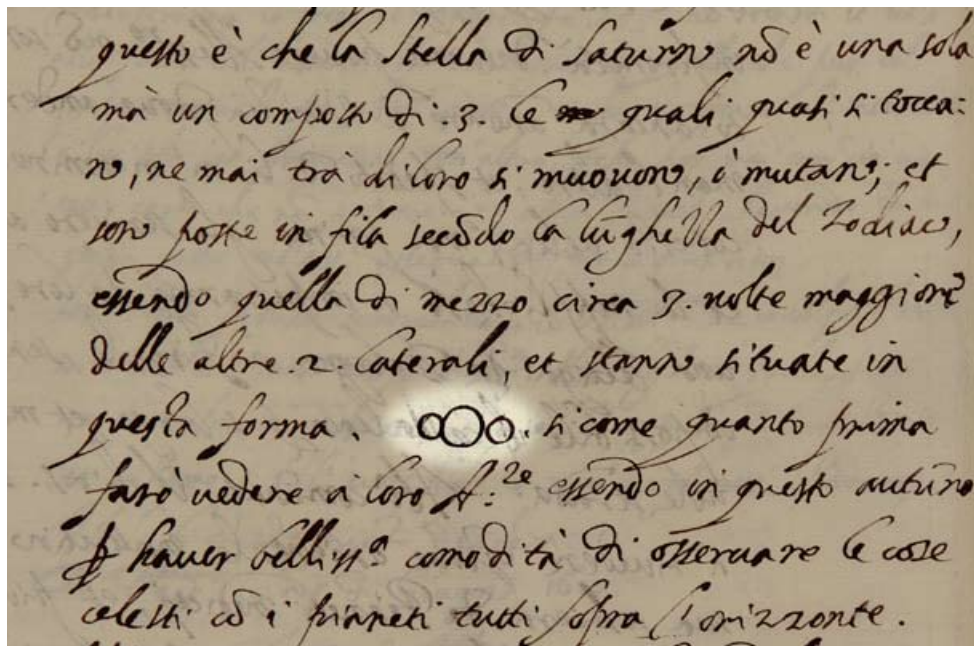 questo è che la Stella di Saturno nõ è una sola
mà un composto di .3. le quali quasi si tocca:
no, ne mai trà di loro si muovono, ò mutano; et
son poste in fila secõdo la lũghezza del zodiaco,
essendo quella di mezzo circa 3. uolte maggiore
delle altre .2. laterali, et stanno situate in
questa forma. oOo. si come quanto prima
farò uedere à loro A.ze essendo in questo autũno
ꝑ hauer belliss.a comodità di osseruare le cose
celesti cõ i pianeti tutti sopra l'orizzonte.